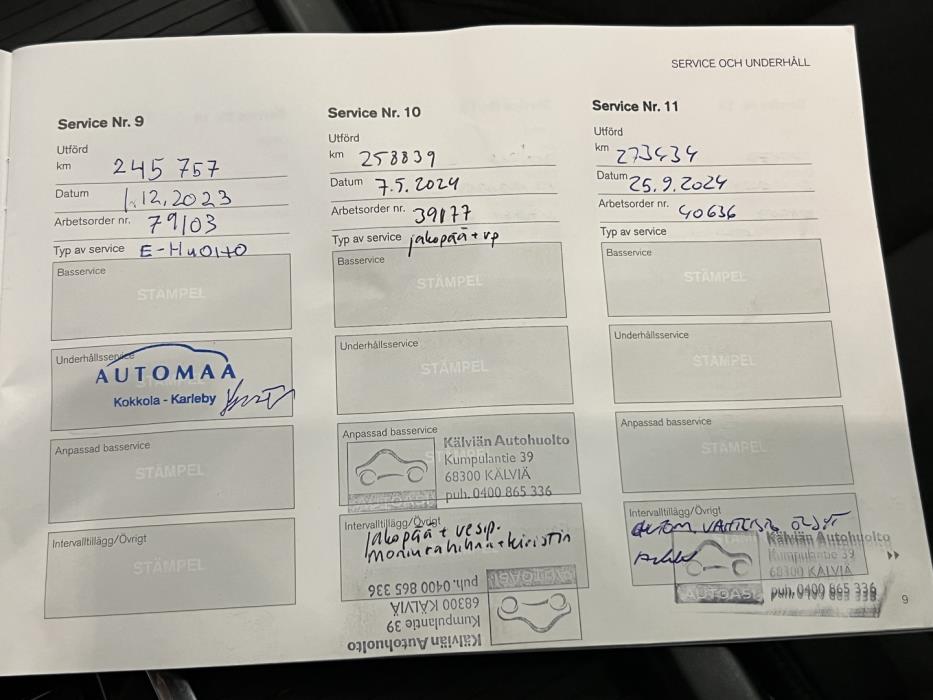 SERVICE OCH UNDERHÅLL
Service Nr. 9
Utförd
km 245 757
Datum 1.12.2023
Arbetsorder nr. 79103
Typ av service E-Huolto
Basservice
STÄMPEL
Underhållsservice
AUTOMAA
Kokkola - Karleby
Anpassad basservice
STÄMPEL
Intervalltillägg/Övrigt
STÄMPEL
Service Nr. 10
Utförd
km 258839
Datum 7.5.2024
Arbetsorder nr. 39177
Typ av service jakopää + vp
Basservice
STÄMPEL
Underhållsservice
STÄMPEL
Anpassad basservice
Kälviän Autohuolto
Kumpulantie 39
68300 KÄLVIÄ
puh. 0400 865 336
Intervalltillägg/Övrigt
jakopää + vesip.
moniurahihna + kiristin
AUTOASI
puh. 0400 865 336
68300 KÄLVIÄ
Kumpulantie 39
Kälviän Autohuolto
Service Nr. 11
Utförd
km 273434
Datum 25.9.2024
Arbetsorder nr. 40636
Typ av service
Basservice
STÄMPEL
Underhållsservice
STÄMPEL
Anpassad basservice
STÄMPEL
Intervalltillägg/Övrigt
Kälviän Autohuolto
Kumpulantie 39
68300 KÄLVIÄ
AUTOASI puh. 0400 865 336
9